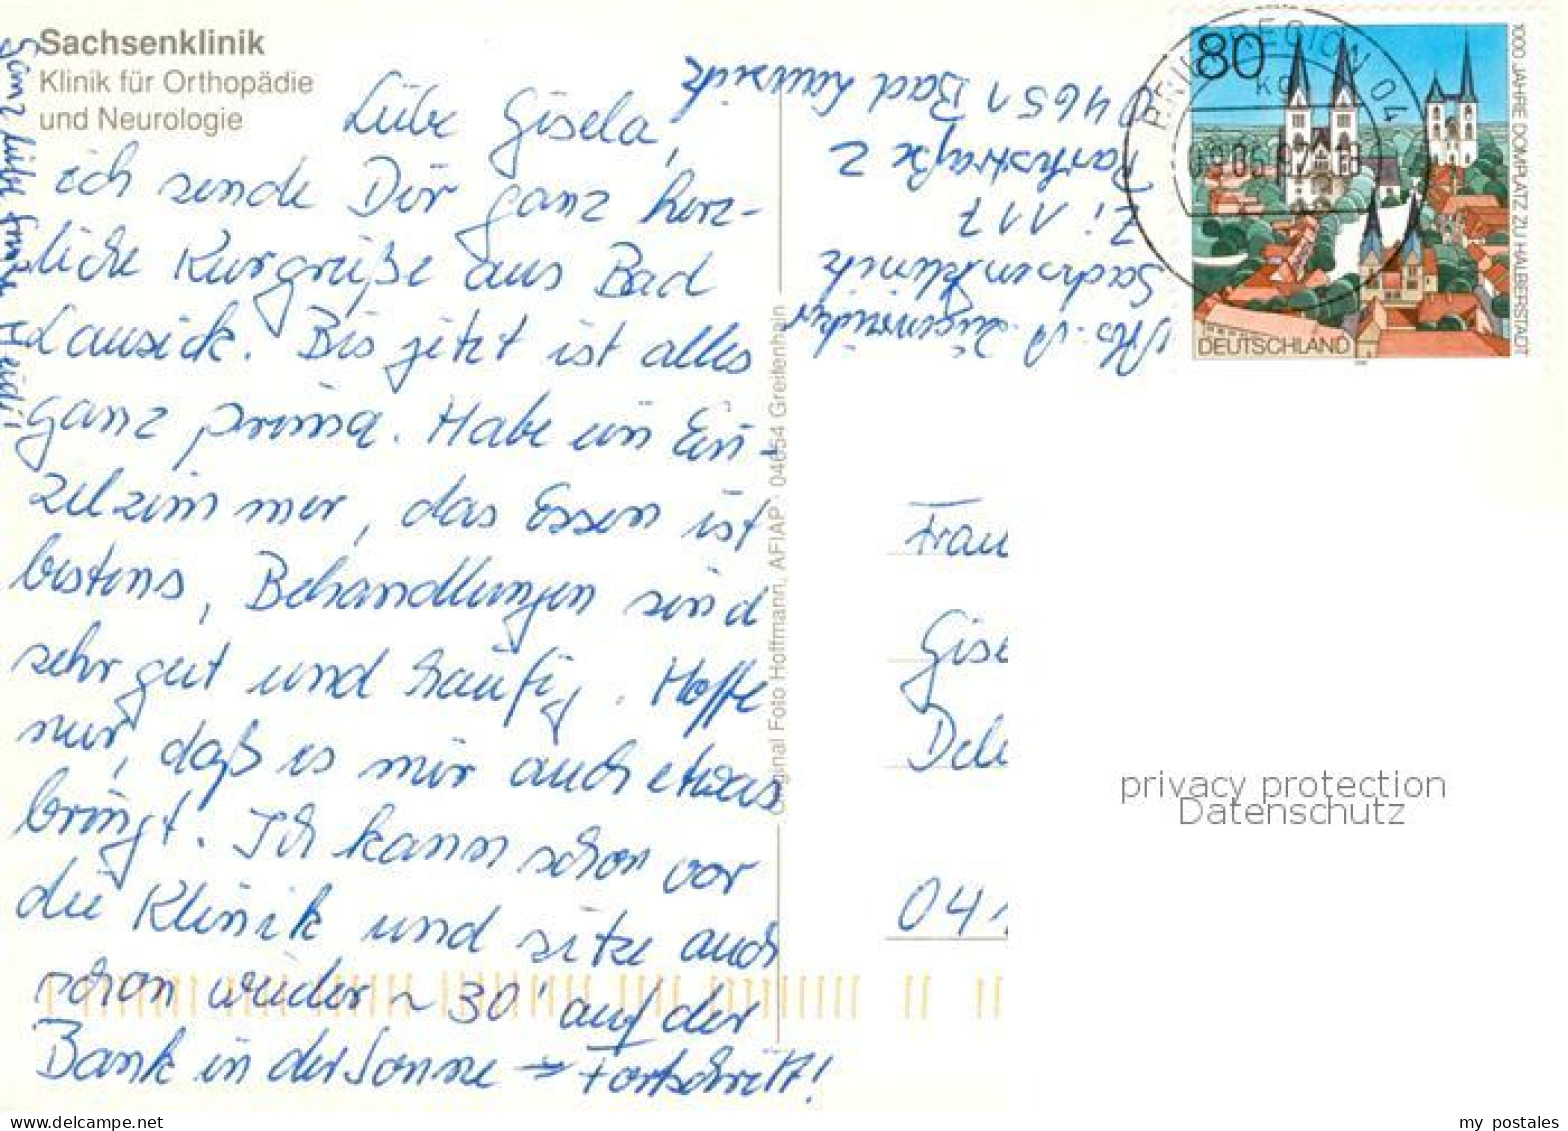 Sachsenklinik
Klinik für Orthopädie
und Neurologie
Liebe Gisela,
ich sende Dir ganz herz-
liche Kurgrüße aus Bad
Lausick. Bis jetzt ist alles
ganz prima. Habe ein Ein-
zelzimmer, das Essen ist
bestens, Behandlungen sind
sehr gut und häufig. Hoffe
nur, daß es mir auch etwas
bringt. Ich kann schon vor
die Klinik und sitze auch
schon wieder ~ 30' auf der
Bank in der Sonne → Fortschritt!
Ganz liebe Grüße Heidi!
Original Foto Hoffmann, AFIAP · 04654 Greifenhain
Sachsenklinik
Zi 117
Parkstraße 2
04651 Bad Lausick
80
1000 JAHRE DOMPLATZ ZU HALBERSTADT
DEUTSCHLAND
BRIEFREGION 04
Frau
Gise
Deli
04
privacy protection
Datenschutz
www.delcampe.net
my_postales